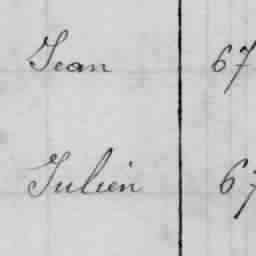 Jean 67
Julien 67